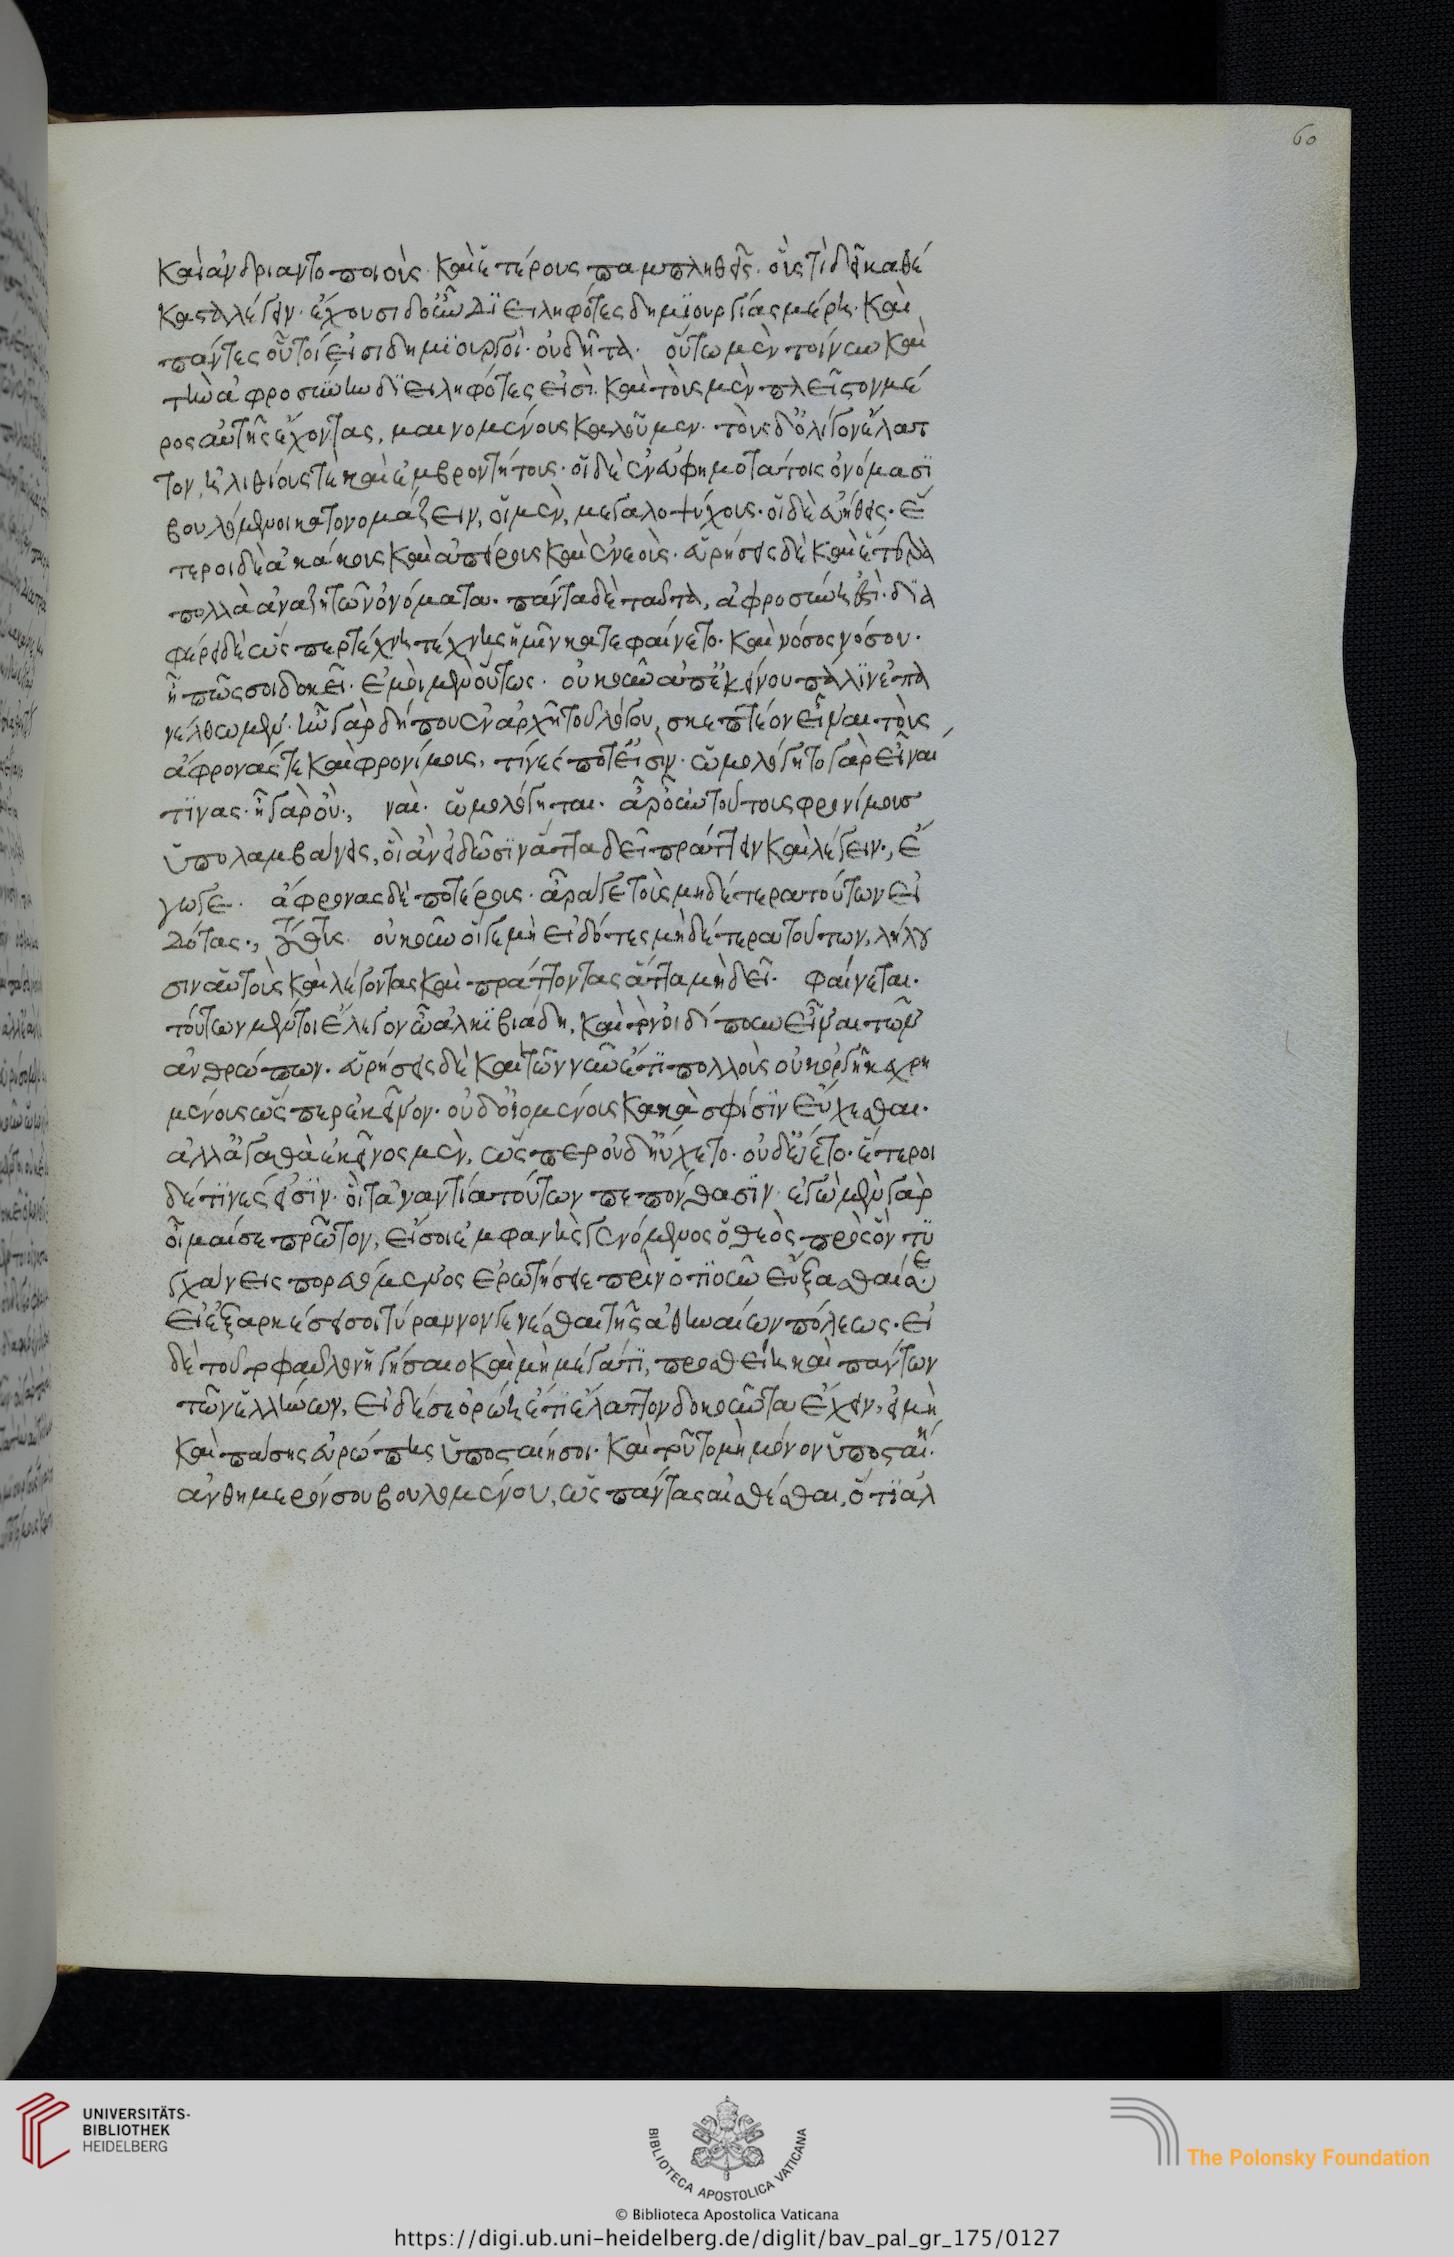 60
καὶ ἀνδριαντοποιοὺς· καὶ ἑτέρους παμπληθεῖς· οὓς τί δεῖ καθέ
καστα λέγειν· ἔχουσι δ' οὖν διειληφότες δημιουργίας μέρη· καὶ
πάντες οὗτοι εἰσὶ δημιουργοί· οὐδῆτα· οὕτω μὲν τοίνυν καὶ
τὴν ἀφροσύνην διειληφότες εἰσὶ· καὶ τοὺς μὲν πλεῖστον μέ
ρος αὐτῆς ἔχοντας, μαινομένους καλοῦμεν· τοὺς δ' ὀλίγον ἔλατ
τον, ἠλιθίους τὲ καὶ ἐμβροντήτους· οἱ δὲ ἐν εὐφημοτάτοις ὀνόμασι
βουλόμενοι κατονομάζειν, οἱ μὲν, μεγαλοψύχους· οἱ δὲ εὐήθεις· ἕ
τεροι δὲ ἀκάκους καὶ ἀπείρους καὶ ἐνεοὺς· εὑρήσεις δὲ καὶ ἕτερα
πολλὰ ἀναζητῶν ὀνόματα· πάντα δὲ ταῦτα, ἀφροσύνη ἐστὶ· δια
φέρει δὲ ὥσπερ τέχνη τέχνης ἡμῖν κατεφαίνετο· καὶ νόσος νόσου·
ἢ πῶς σοι δοκεῖ· ἐμοὶ μὲν οὕτως· οὐκοῦν ἀπ' ἐκείνου πάλιν ἐπα
νέλθωμεν· ἦν γὰρ δήπου ἐν ἀρχῆ τοῦ λόγου, σκεπτέον εἶναι τοὺς
ἄφρονάς τε καὶ φρονίμους, τίνές ποτ' εἰσὶν· ὡμολόγητο γὰρ εἶναί
τινας· ἢ γὰρ οὔ., ναὶ· ὡμολόγηται· ἆρ' οὖν τούτους φρονίμους
ὑπολαμβάνεις, οἳ ἂν εἰδῶσιν ἅττα δεῖ πράττειν καὶ λέγειν., ἔ
γωγε· ἄφρονας δὲ ποτέρους· ἆρά γε τοὺς μηδέτερα τούτων εἰ
δότας., τούτους· οὐκοῦν οἵγε μὴ εἰδότες μηδέτερα τούτων, λήσου
σιν αὑτοὺς καὶ λέγοντας καὶ πράττοντας ἅττα μὴ δεῖ· φαίνεται·
τούτων μέντοι ἔλεγον ὦ ἀλκιβιάδη, καὶ τὸν οἰδίπουν εἶναι τῶν
ἀνθρώπων· εὑρήσεις δὲ καὶ τῶν νῦν ἔτι πολλοὺς οὐκ ὀργῆ κεχρη
μένους ὥσπερ ἐκεῖνον· οὐδ' οἰομένους κακὰ σφίσιν εὔχεσθαι·
ἀλλ' ἀγαθὰ ἐκεῖνος μὲν, ὥσπερ οὐδ' ηὔχετο· οὐδ' ᾤετο· ἕτεροι
δέ τινές εἰσιν· οἳ τἀναντία τούτων πεπόνθασιν· ἐγὼ μὲν γὰρ
οἶμαί σε πρῶτον, εἴ σοι ἐμφανὴς γενόμενος ὁ θεὸς πρὸς ὃν τυ
γχάνεις πορευόμενος ἐρωτήσειε πρὶν ὁτιοῦν εὔξασθαί σε
εἰ ἐξαρκέσει σοι τύραννον γενέσθαι τῆς ἀθηναίων πόλεως· εἰ
δὲ τοῦτο φαῦλον ἡγήσαιο καὶ μὴ μέγα τι, προσθείη καὶ πάντων
τῶν ἑλλήνων, εἰ δέ σε ὁρώη ἔτι ἔλαττον δοκοῦντα ἔχειν, εἰ μὴ
καὶ πάσης εὐρώπης ὑποσταίη σοι· καὶ τοῦτο μὴ μόνον ὑποσταίη·
ἀνθημερόν σου βουλομένου, ὡς πάντας αἰσθέσθαι, ὅτι ἀλ
UNIVERSITÄTS-
BIBLIOTHEK
HEIDELBERG
BIBLIOTECA APOSTOLICA VATICANA
The Polonsky Foundation
© Biblioteca Apostolica Vaticana
https://digi.ub.uni-heidelberg.de/diglit/bav_pal_gr_175/0127